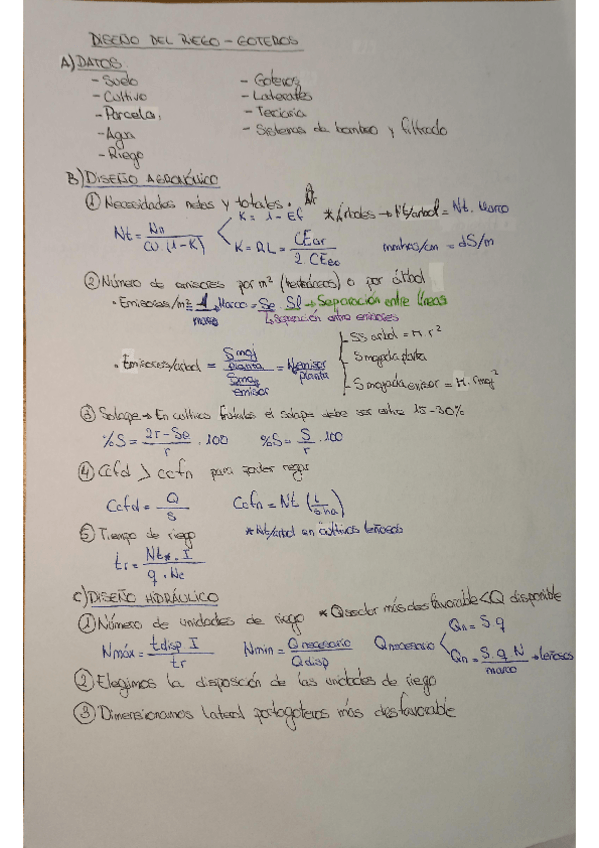 DISEÑO DEL RIEGO - GOTEROS
A) DATOS
- Suelo - Goteros
- Cultivo - Laterales
- Parcela - Terciaria
- Agua - Sistemas de bombeo y filtrado
- Riego
B) DISEÑO AGRONÓMICO
① Necesidades netas y totales.
Nt = Nn / CU · (1-K) K = 1 - Ef *Árboles → Nt/árbol = Nt. Marco
K = RL = CEar / 2. CEes mmhos/cm = dS/m
② Número de emisores por m² (herbáceos) o por árbol
• Emisores/m² = 1 / marco Marco = Se. Sl → Separación entre líneas
↳ Separación entre emisores
• Emisores/árbol = Smoj planta / Smoj emisor = N emisor / planta
- Ss árbol = π r²
S mojada planta
- S mojada emisor = π. rmoj²
③ Solape → En cultivos frutales el solape debe ser entre 15-30%
%S = 2r - Se / r . 100 %S = S / r . 100
④ Ccfd > ccfn para poder regar
Ccfd = Q / S Ccfn = Nt (L / s ha)
⑤ Tiempo de riego *Nt/árbol en cultivos leñosos
tr = Nt*. I / q . Ne
C) DISEÑO HIDRÁULICO
① Número de unidades de riego *Q sector más desfavorable < Q disponible
Nmáx = tdisp I / tr Nmin = Q necesario / Q disp Q necesario Qn = S q
Qn = S. q N / marco → leñosos
② Elegimos la disposición de las unidades de riego
③ Dimensionamos lateral portagoteros más desfavorable